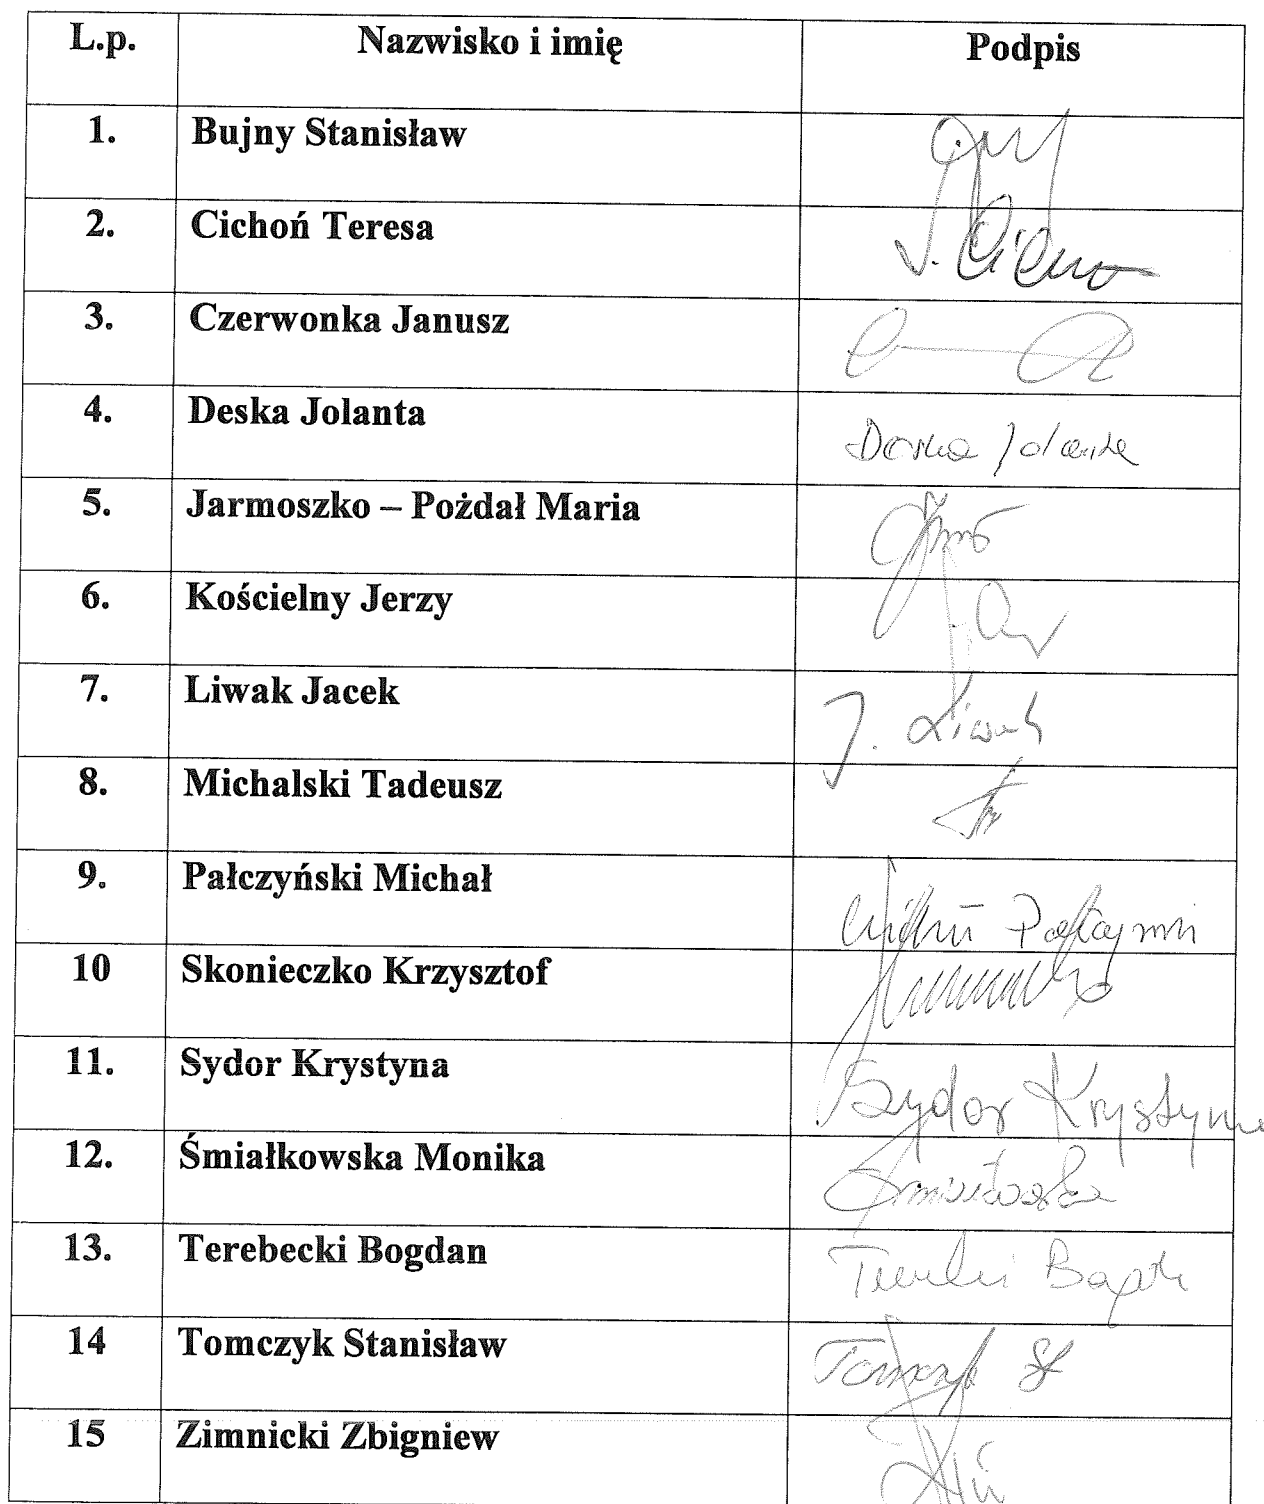 L.p. Nazwisko i imię Podpis
1. Bujny Stanisław
2. Cichoń Teresa
3. Czerwonka Janusz
4. Deska Jolanta Deska Jolanta
5. Jarmoszko – Pożdał Maria
6. Kościelny Jerzy
7. Liwak Jacek J. Liwak
8. Michalski Tadeusz
9. Pałczyński Michał
10 Skonieczko Krzysztof
11. Sydor Krystyna Sydor Krystyna
12. Śmiałkowska Monika
13. Terebecki Bogdan
14 Tomczyk Stanisław Tomczyk St
15 Zimnicki Zbigniew